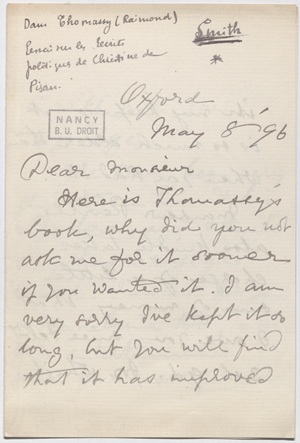 Dans Thomassy (Raimond)
Essai sur les Ecrits
politiques de Christine de
Pisan.
Smith
*
NANCY
B. U. DROIT
Oxford
May 8 '96
Dear Monsieur
Here is Thomassy's
book, why did you not
ask me for it sooner
if you wanted it. I am
very sorry I've kept it so
long, but you will find
that it has improved